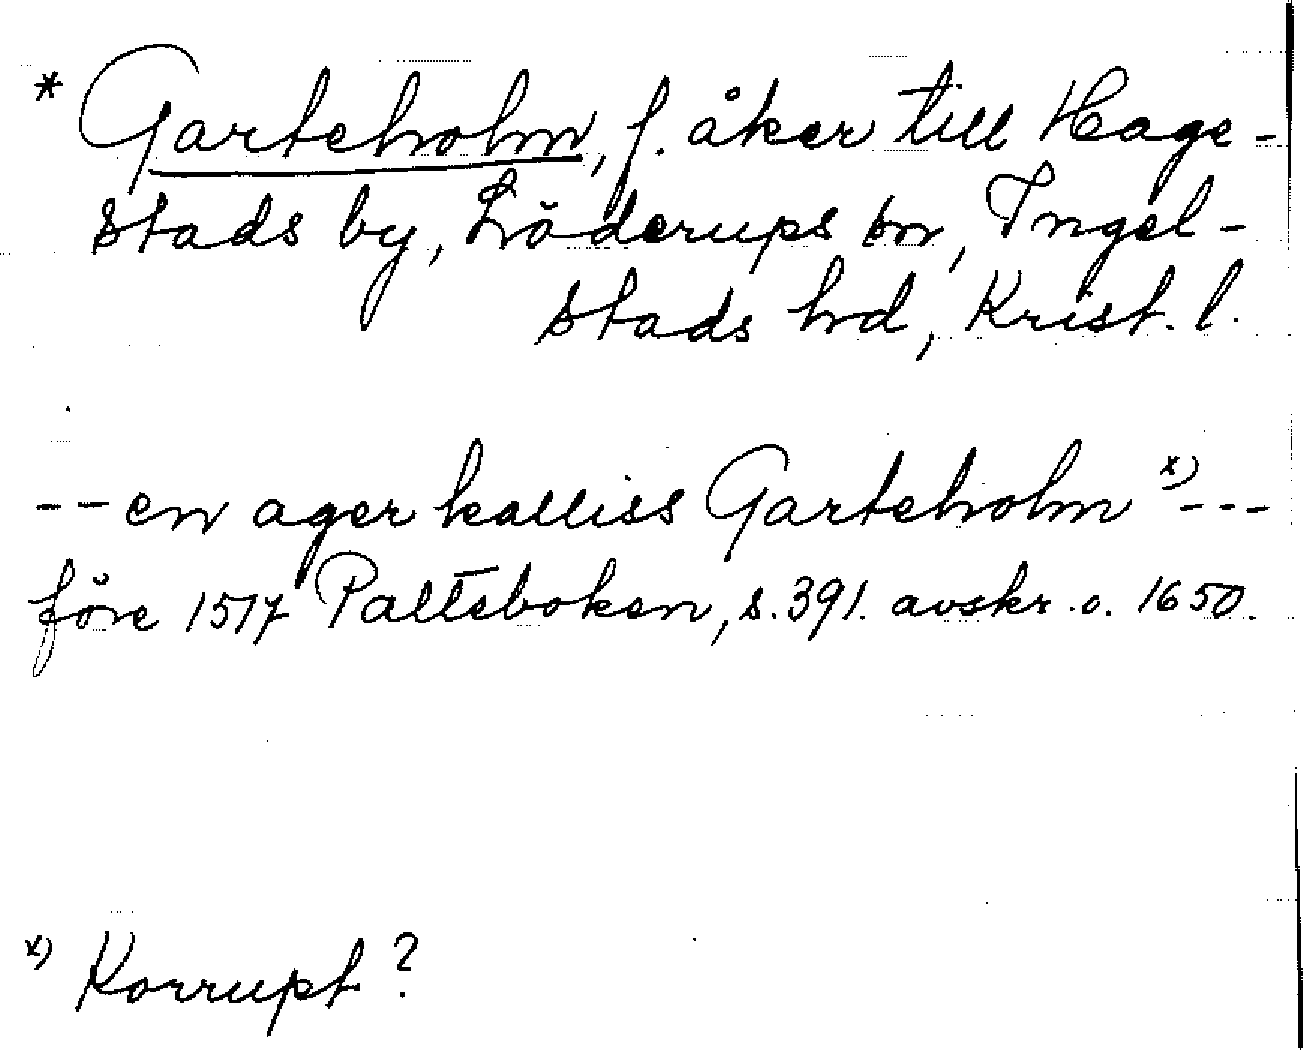 * Garteholm, f. åker till Hage-
stads by, Löderups sn, Ingel-
stads hd, Krist. l.
--en ager kalliss Garteholm x) ---
före 1517 Palteboken, s. 391. avskr. o. 1650.
x) Korrupt?